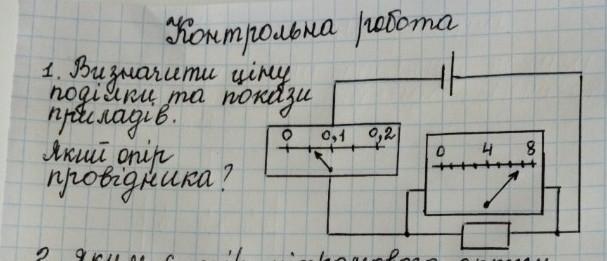 Контрольна робота
1. Визначити ціну
поділки та покази
приладів.
Який опір
провідника?
0 0,1 0,2
0 4 8